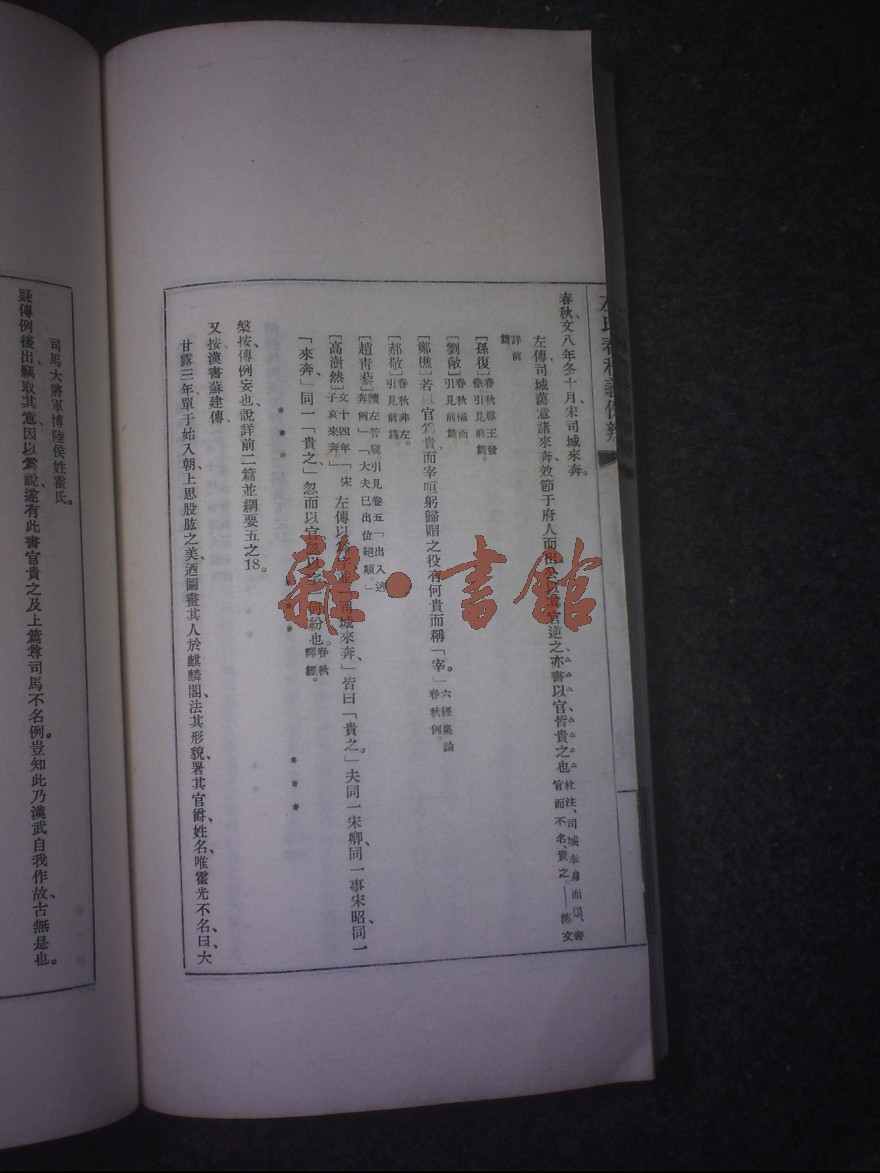 春秋義例辨
春秋、文八年冬十月、宋司城來奔。
左傳司城蕩意諸來奔、效節于府人而出、公以其官逆之、亦書以官、皆貴之也 杜注、司城奉身而退、書官而不名、貴之。——傳文
詳前篇
[孫復] 春秋尊王發微、引見前篇。
[劉敞] 春秋權衡引見前篇。
[鄭樵] 若以官爲貴而宰咺躬歸賵之役有何貴而稱「宰」。六經奧論春秋例。
[郝敬] 春秋非左。引見前篇。
[趙青藜] 讀左管窺引見卷五「出入逃奔例」「大夫已出位絕類」
[高澍然] 文十四年「宋子哀來奔。」左傳以司城來奔」皆曰「貴之。」夫同一宋卿、同一事宋昭、同一
「來奔、」同一「貴之、」忽而以官紛也。春秋釋經。
＊＊＊＊＊＊
槃按、傳例妄也、說詳前二篇並綱要五之18。
又按漢書蘇建傳、
甘露三年單于始入朝、上思股肱之美、迺圖畫其人於麒麟閣、法其形貌、署其官爵、姓名、唯霍光不名、曰、大
司馬大將軍博陸侯姓霍氏。
疑傳例後出、竊取其意、因以爲說、遂有此書官貴之及上篇尊司馬不名例。豈知此乃漢武自我作故、古無是也。
雜·書館